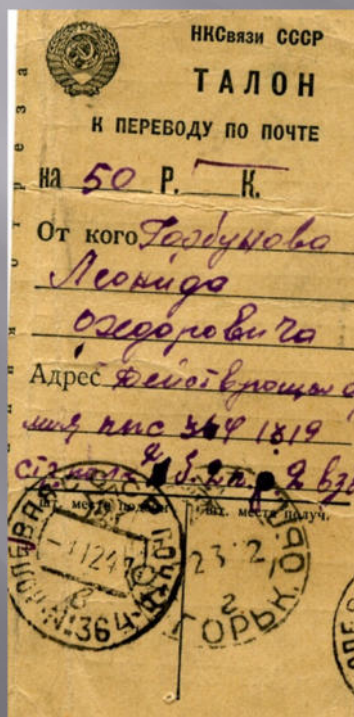 НКСвязи СССР
ТАЛОН
К ПЕРЕВОДУ ПО ПОЧТЕ
на 50 Р. К.
От кого Горбунова
Леонида
Федоровича
Адрес Действующая
ппс 1319
2 взв
Шт. места подачи Шт. места получ.
ПОЛЕВАЯ ПОЧТА
№ 364
23 2
г
ГОРЬК. ОБЛ